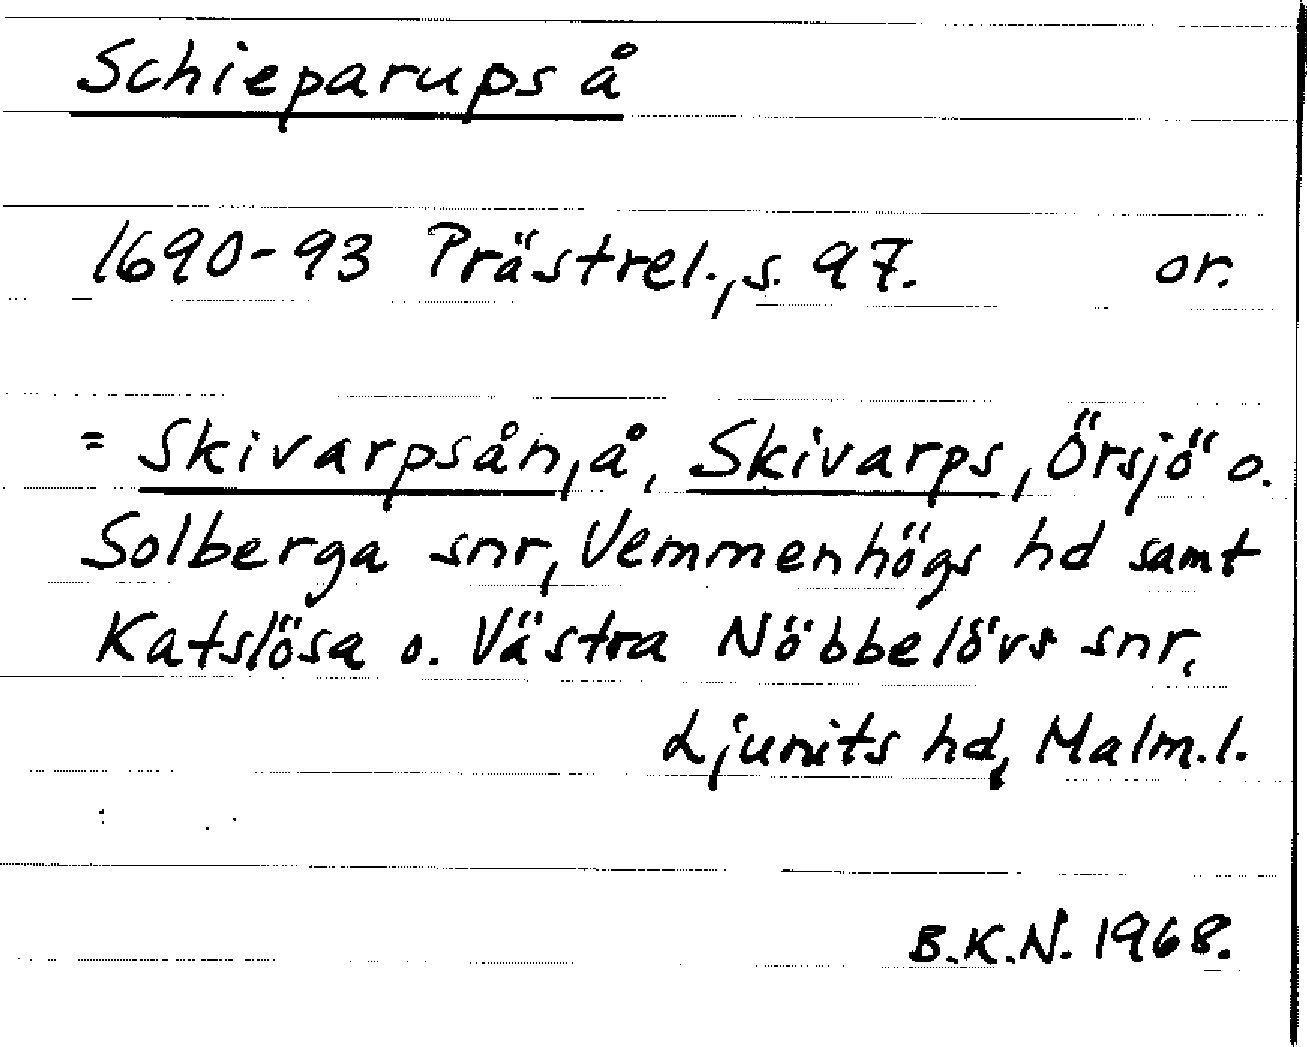 Schieparups å
1690-93 Prästrel., s. 97. or.
= Skivarpsån, å, Skivarps, Örsjö o.
Solberga snr, Vemmenhögs hd samt
Katslösa o. Västra Nöbbelövs snr,
Ljunits hd, Malm.l.
B.K.N. 1968.